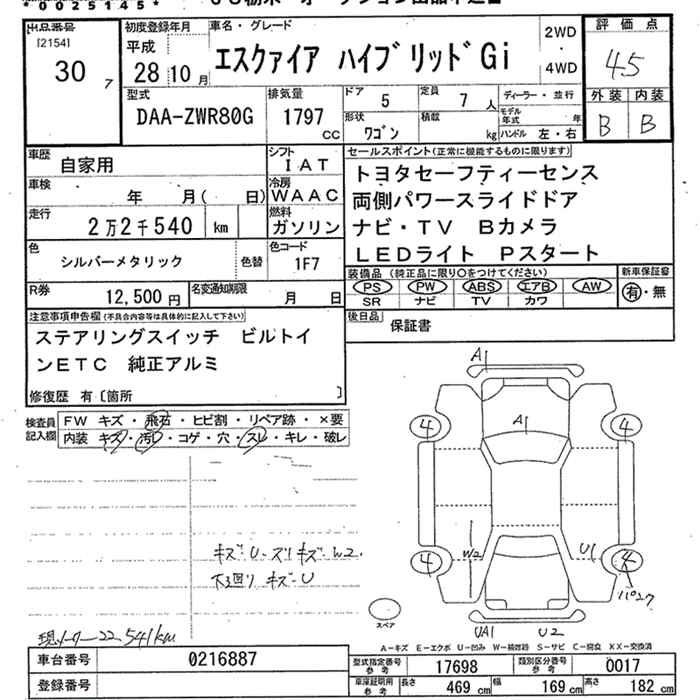 *0025145*
出品番号
[2154]
30 7
初度登録年月
平成
28年10月
車名・グレード
エスクァイア ハイブリッドGi
2WD
・
4WD
評価点
4.5
外装 内装
B B
型式
DAA-ZWR80G
排気量
1797 CC
ドア 5
定員 7人
形状 ワゴン
積載 kg
ディーラー・並行
モデル年式 年
ハンドル 左・右
車歴 自家用
シフト IAT
車検 年 月( 日)
冷房 WAAC
走行 2万2千540 km
燃料 ガソリン
色 シルバーメタリック
色替
色コード 1F7
R券 12,500円
名変通知期限 月 日
セールスポイント(正常に機能するものに限ります)
トヨタセーフティーセンス
両側パワースライドドア
ナビ・TV Bカメラ
LEDライト Pスタート
装備品(純正品に限り○をつけてください)
PS PW ABS エアB AW
SR ナビ TV カワ
新車保証書
有・無
後日品 保証書
注意事項申告欄(不具合内容等は具体的に記入して下さい)
ステアリングスイッチ ビルトイ
ンETC 純正アルミ
修復歴 有〔箇所 〕
検査員記入欄
FW キズ・飛石・ヒビ割・リペア跡・×要
内装 キズ・汚レ・コゲ・穴・スレ・キレ・破レ
キズU-ズリキズW2.
下廻りキズ-U
現メーター22,541km
A1
A1
4
4
4
4
W2
U1
UA1
U2
スペア
A-キズ E-エクボ U-凹み W-補修跡 S-サビ C-腐食 XX-交換済
車台番号 0216887
登録番号
型式指定番号 参考 17698
類別区分番号 参考 0017
車庫証明用 参考 長さ 469 cm 幅 169 cm 高さ 182 cm